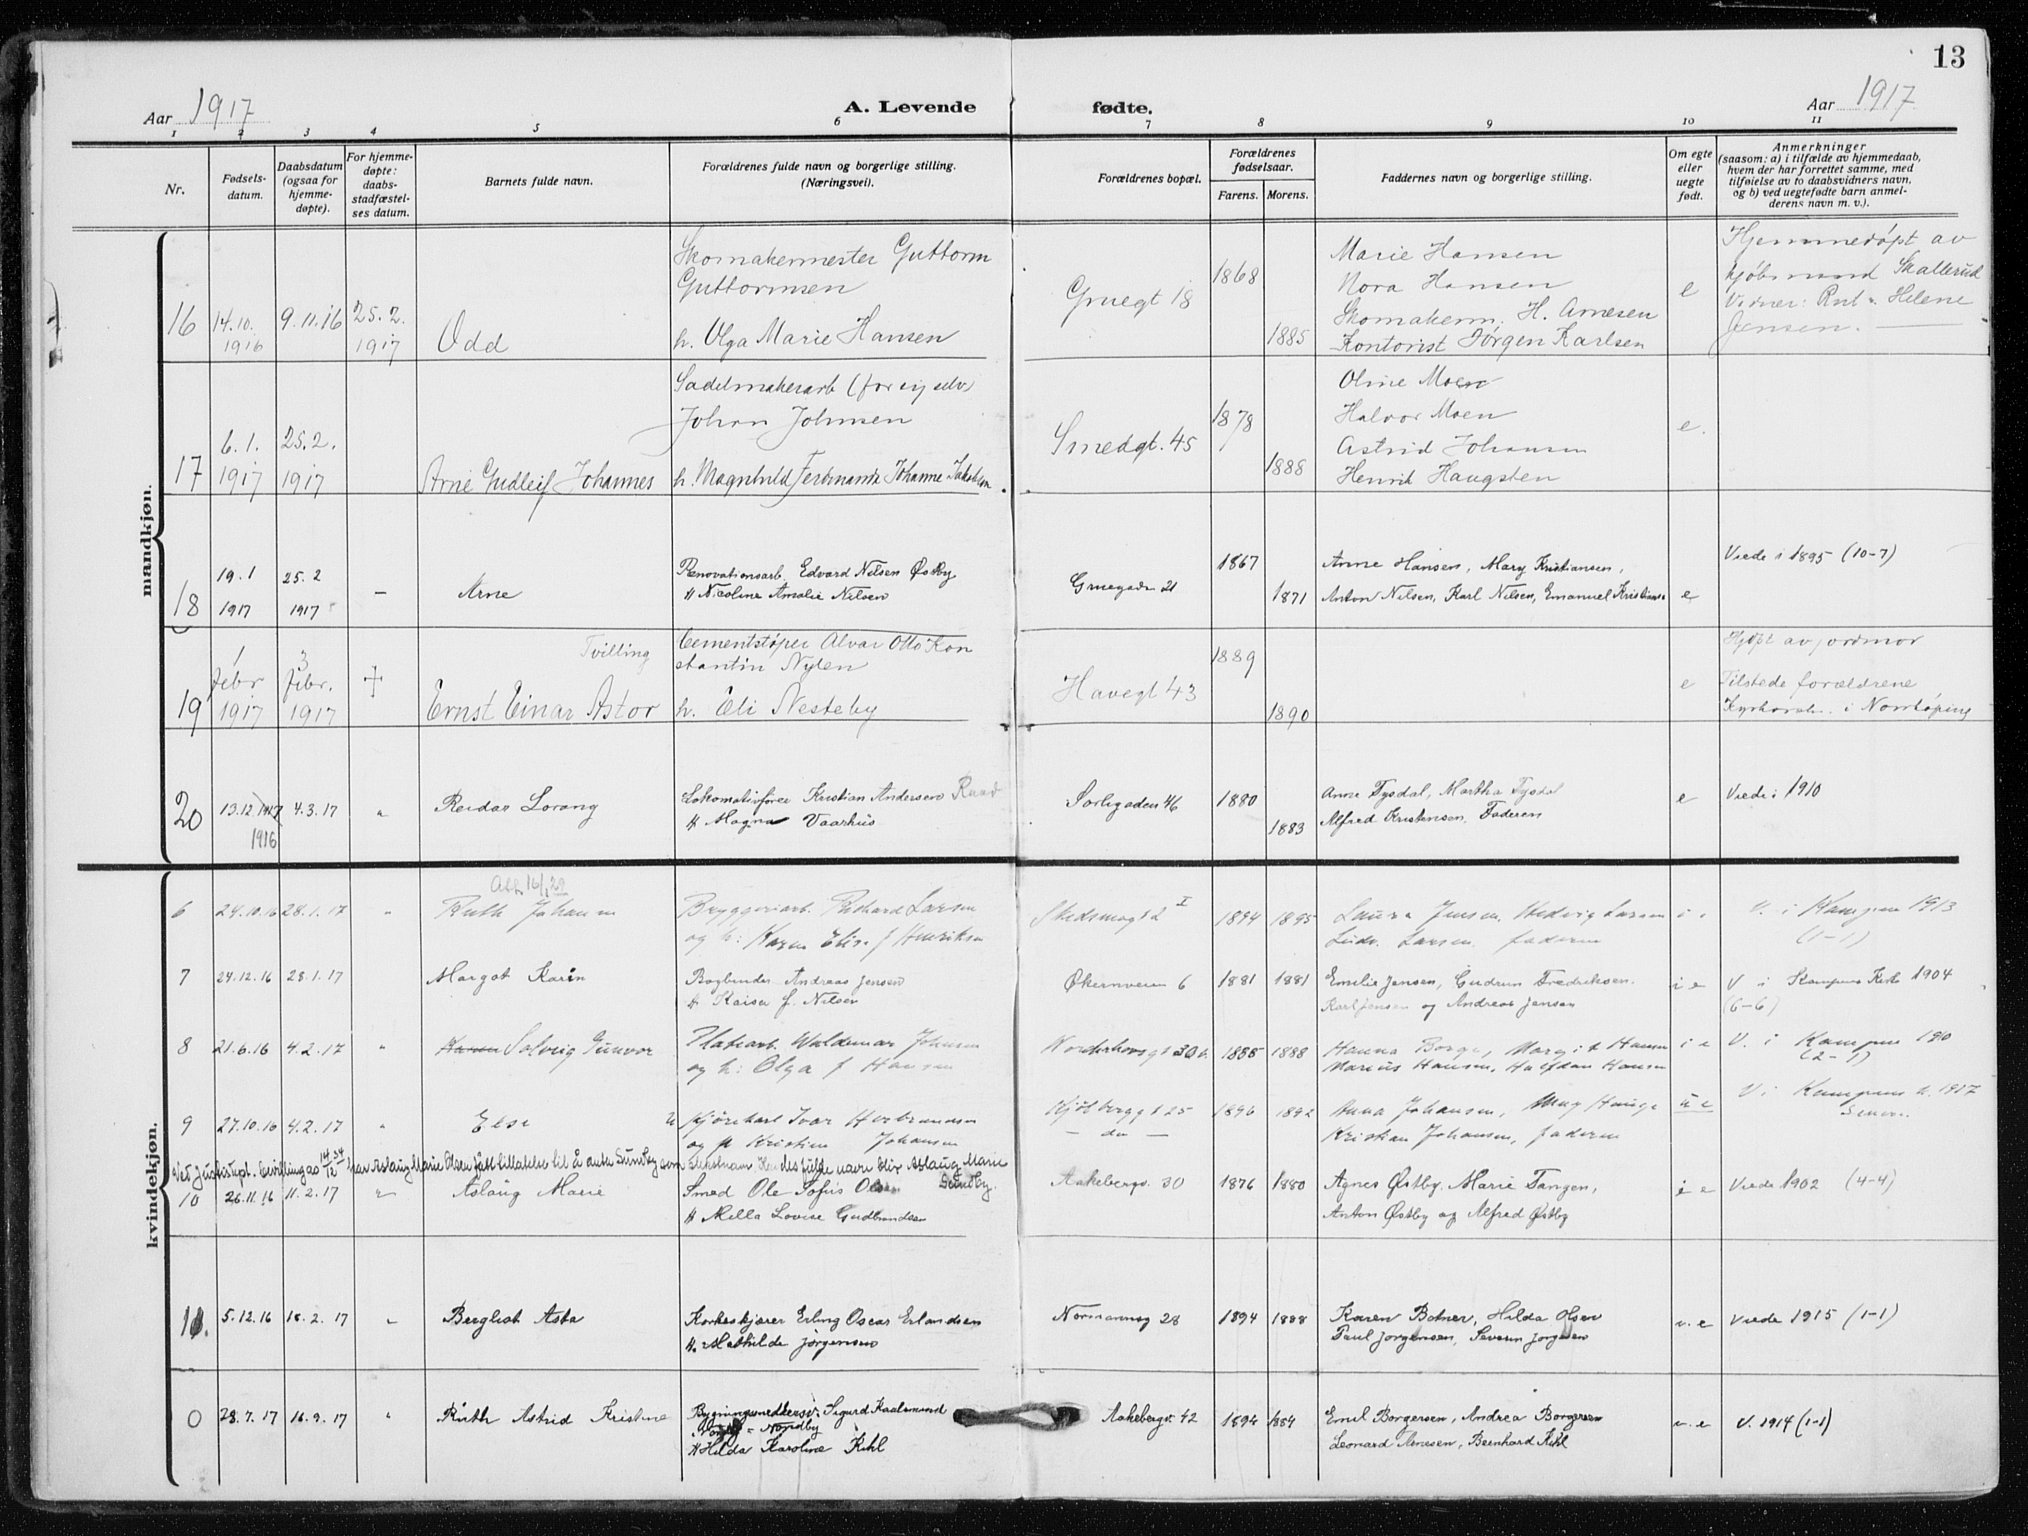 13
Aar 1917
A. Levende
fødte.
Aar 1917
1 2 3 4 5 6 7 8 9 10 11
Nr.
Fødsels-
datum.
Daabsdatum
(ogsaa for
hjemme-
døpte).
For hjemme-
døpte:
daabs-
stadfæstel-
ses datum.
Barnets fulde navn.
Forældrenes fulde navn og borgerlige stilling.
(Næringsvei).
Forældrenes bopæl.
Forældrenes
fødselsaar.
Farens. Morens.
Faddernes navn og borgerlige stilling.
Om egte
eller
uegte
født.
Anmerkninger
(saasom: a) i tilfælde av hjemmedaab,
hvem der har forrettet samme, med
tilføielse av to daabsvidners navn,
og b) ved uegtefødte barn anmel-
derens navn m. v.).
mandkjøn.
16
14.10.
1916
9.11.16
25.2.
1917
Odd
Skomakermester Guttorm
Guttormsen
h. Olga Marie Hansen
Gruegt 18
1868
1885
Marie Hansen
Nora Hansen
Skomakerm. H. Arnesen
Kontorist Jørgen Karlsen
e
Hjemmedøpt av
kjøbmand Skallerud
Helene
Jensen.
17
6.1.
1917
25.2.
1917
Arne Gudleif Johannes
Sadelmakerarb (for sig selv)
Johan Johnsen
h. Magnhild Ferdinande Johanne
Smedgt. 45
1878
1888
Oline Moen
Halvor Moen
Astrid Johansen
Henrik Haugsten
e.
18
19.1
1917
25.2
1917
-
Arne
Renovationsarb. Edvard Nilsen Østby
H Nicoline Amalie Nilsen
Gruegaden 21
1867
1871
Anne Hansen, Mary Kristiansen,
Anton Nilsen, Karl Nilsen, Emanuel
e
Viede i 1895 (10-7)
19
1
febr
1917
3
febr.
1917
+
Tvilling
Ernst Einar Astor
Cementstøper Alvar Otto Kon
stantin Nylen
h. Eli Nesteby
Havegt 43
1889
1890
e
Hjdøpt av jordmor
Tilstede forældrene
i Norrköping
20
13.12.1917
1916
4.3.17
"
Reidar Lorang
Lokomotivfører Kristian Andersen Ruud
H Magna Vaarhus
Sorligaden 46
1880
1883
Anne Tysdal, Martha Tysdal
Alfred Kristensen, Faderen
e
Viede i 1910
kvindekjøn.
6
24.10.16
28.1.17
"
Ruth Johanne
Bryggeriarb. Richard Larsen
og h: Karen Elise f Henriksen
Skedsmogt 2 I
1894 1895
Laura Jensen, Hedvig Larsen
Ludv. Larsen, faderen
V. i Kampen 1913
(1-1)
7
24.12.16
28.1.17
Margot Karin
Bogbinder Andreas Jensen
H Kaisa f. Nilsen
Økernveien 6
1881 1881
Emilie Jensen, Gudrun Fredriksen.
Karl Jensen og Andreas Jensen
i e
V i Kampens Kirke 1904
(6-6)
8
21.6.16
4.2.17
"
Solveig Gunvor
Platearb. Waldemar Johnsen
og h: Olga f Hansen
Norderhovsgt 30
1885 1888
Hanna Borge, Margit Hansen
Marius Hansen, Halfdan Hansen
i e
V. i Kampen 190
(2-1)
9
27.10.16
4.2.17
"
Else
Kjørekarl Ivar Herbrandsen
og p Kristine Johansen
Kjølberggt 25
- do -
1896 1892
Anna Johansen, May Hauge
Kristian Johansen, faderen
u e
V i Kampens k. 1917
Senere.
Ved Just.dept. bevilling as 14/12 34 har Aslaug Marie Olsen fått tillatelse til å anta Sundby som slektsnavn. Hendes fulde navn blir Aslaug Marie
Sundby.
10
26.11.16
11.2.17
"
Aslaug Marie
Smed Ole Sofus Olsen
H Milla Lovise Gudbrandsen
Aakebergv. 30
1876 1880
Agnes Østby, Marie Tangen,
Anton Østby og Alfred Østby
i e
Viede 1902 (4-4)
11.
5.12.16
18.2.17
"
Bergliot Asta
Korkeskjærer Erling Oscar Erlandsen
H. Mathilde Jørgensen
Normannsg 28
1894 1888
Karen Botner, Hilda Olsen
Paul Jørgensen, Severin Jørgensen
i. e
Viede 1915 (1-1)
0
28.7.17
16.9.17
"
Ruth Astrid Kristine
Sigurd Kaalsrund
Nordby
H Hilda Karoline Kihl
Aakebergv. 42
1894 1884
Emil Borgersen, Andrea Borgersen
Leonard Arnesen, Bernhard Kihl
i. e
V. 1914 (1-1)